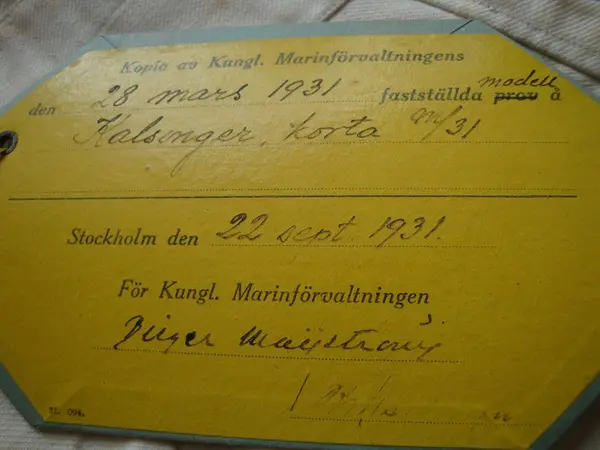 Kopia av Kungl. Marinförvaltningens
den 28 mars 1931 fastställda prov modell å
Kalsonger, korta m/31
Stockholm den 22 sept. 1931.
För Kungl. Marinförvaltningen
Birger
094.